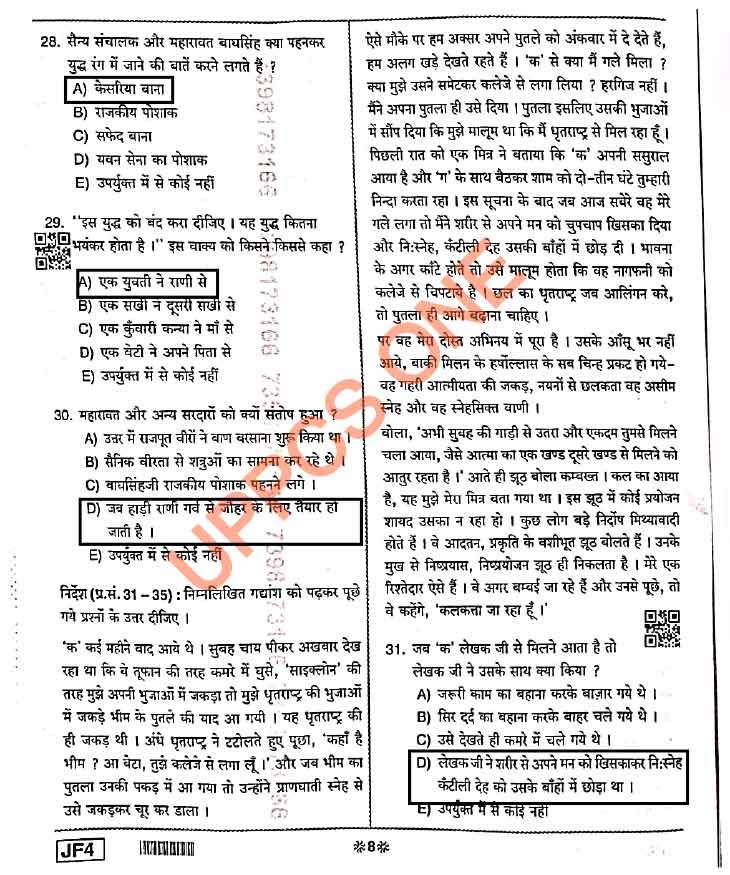 28. सैन्य संचालक और महारावत बाघसिंह क्या पहनकर
युद्ध रंग में जाने की बातें करने लगते हैं ?
A) केसरिया बाना
B) राजकीय पोशाक
C) सफेद बाना
D) यवन सेना का पोशाक
E) उपर्युक्त में से कोई नहीं
29. "इस युद्ध को बंद करा दीजिए । यह युद्ध कितना
भयंकर होता है ।" इस वाक्य को किसने किससे कहा ?
A) एक युवती ने राणी से
B) एक सखी ने दूसरी सखी से
C) एक कुँवारी कन्या ने माँ से
D) एक बेटी ने अपने पिता से
E) उपर्युक्त में से कोई नहीं
30. महारावत और अन्य सरदारों को क्यों संतोष हुआ ?
A) उत्तर में राजपूत वीरों ने बाण बरसाना शुरू किया था ।
B) सैनिक वीरता से शत्रुओं का सामना कर रहे थे ।
C) बाघसिंहजी राजकीय पोशाक पहनने लगे ।
D) जब हाड़ी राणी गर्व से जौहर के लिए तैयार हो
जाती है ।
E) उपर्युक्त में से कोई नहीं
निर्देश (प्र.सं. 31 – 35) : निम्नलिखित गद्यांश को पढ़कर पूछे
गये प्रश्नों के उत्तर दीजिए ।
'क' कई महीने बाद आये थे । सुबह चाय पीकर अखबार देख
रहा था कि वे तूफान की तरह कमरे में घुसे, 'साइक्लोन' की
तरह मुझे अपनी भुजाओं में जकड़ा तो मुझे धृतराष्ट्र की भुजाओं
में जकड़े भीम के पुतले की याद आ गयी । यह धृतराष्ट्र की
ही जकड़ थी । अंधे धृतराष्ट्र ने टटोलते हुए पूछा, 'कहाँ है
भीम ? आ बेटा, तुझे कलेजे से लगा लूँ ।' और जब भीम का
पुतला उनकी पकड़ में आ गया तो उन्होंने प्राणघाती स्नेह से
उसे जकड़कर चूर कर डाला ।
JF4
8
ऐसे मौके पर हम अक्सर अपने पुतले को अंकवार में दे देते हैं,
हम अलग खड़े देखते रहते हैं । 'क' से क्या मैं गले मिला ?
क्या मुझे उसने समेटकर कलेजे से लगा लिया ? हरगिज नहीं ।
मैंने अपना पुतला ही उसे दिया । पुतला इसलिए उसकी भुजाओं
में सौंप दिया कि मुझे मालूम था कि मैं धृतराष्ट्र से मिल रहा हूँ ।
पिछली रात को एक मित्र ने बताया कि 'क' अपनी ससुराल
आया है और 'ग' के साथ बैठकर शाम को दो-तीन घंटे तुम्हारी
निन्दा करता रहा । इस सूचना के बाद जब आज सबेरे वह मेरे
गले लगा तो मैंने शरीर से अपने मन को चुपचाप खिसका दिया
और निःस्नेह, कँटीली देह उसकी बाँहों में छोड़ दी । भावना
के अगर काँटे होते तो उसे मालूम होता कि वह नागफनी को
कलेजे से चिपटाये है । छल का धृतराष्ट्र जब आलिंगन करे,
तो पुतला ही आगे बढ़ाना चाहिए ।
पर वह मेरा दोस्त अभिनय में पूरा है । उसके आँसू भर नहीं
आये, बाकी मिलन के हर्षोल्लास के सब चिन्ह प्रकट हो गये–
वह गहरी आत्मीयता की जकड़, नयनों से छलकता वह असीम
स्नेह और वह स्नेहसिक्त वाणी ।
बोला, 'अभी सुबह की गाड़ी से उतरा और एकदम तुमसे मिलने
चला आया, जैसे आत्मा का एक खण्ड दूसरे खण्ड से मिलने को
आतुर रहता है ।' आते ही झूठ बोला कम्बख्त । कल का आया
है, यह मुझे मेरा मित्र बता गया था । इस झूठ में कोई प्रयोजन
शायद उसका न रहा हो । कुछ लोग बड़े निर्दोष मिथ्यावादी
होते हैं । वे आदतन, प्रकृति के वशीभूत झूठ बोलते हैं । उनके
मुख से निष्प्रयास, निष्प्रयोजन झूठ ही निकलता है । मेरे एक
रिश्तेदार ऐसे हैं । वे अगर बम्बई जा रहे हैं और उनसे पूछे, तो
वे कहेंगे, 'कलकत्ता जा रहा हूँ ।'
31. जब 'क' लेखक जी से मिलने आता है तो
लेखक जी ने उसके साथ क्या किया ?
A) जरूरी काम का बहाना करके बाज़ार गये थे ।
B) सिर दर्द का बहाना करके बाहर चले गये थे ।
C) उसे देखते ही कमरे में चले गये थे ।
D) लेखक जी ने शरीर से अपने मन को खिसकाकर निःस्नेह
कँटीली देह को उसके बाँहों में छोड़ा था ।
E) उपर्युक्त में से कोई नहीं
UPPCS ONE